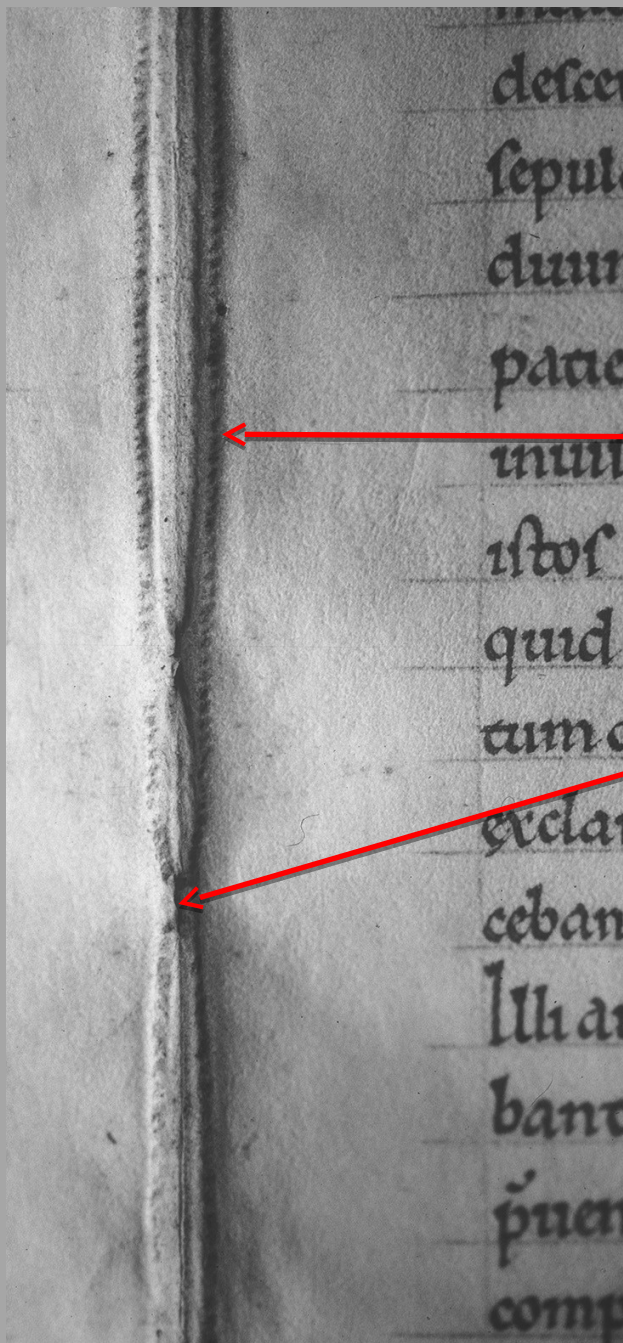 deſcen
ſepul
duum
patie
inuit
iſtoſ
quid
tum c
exclam
ceban
Illi au
bant
p̃uen
comp